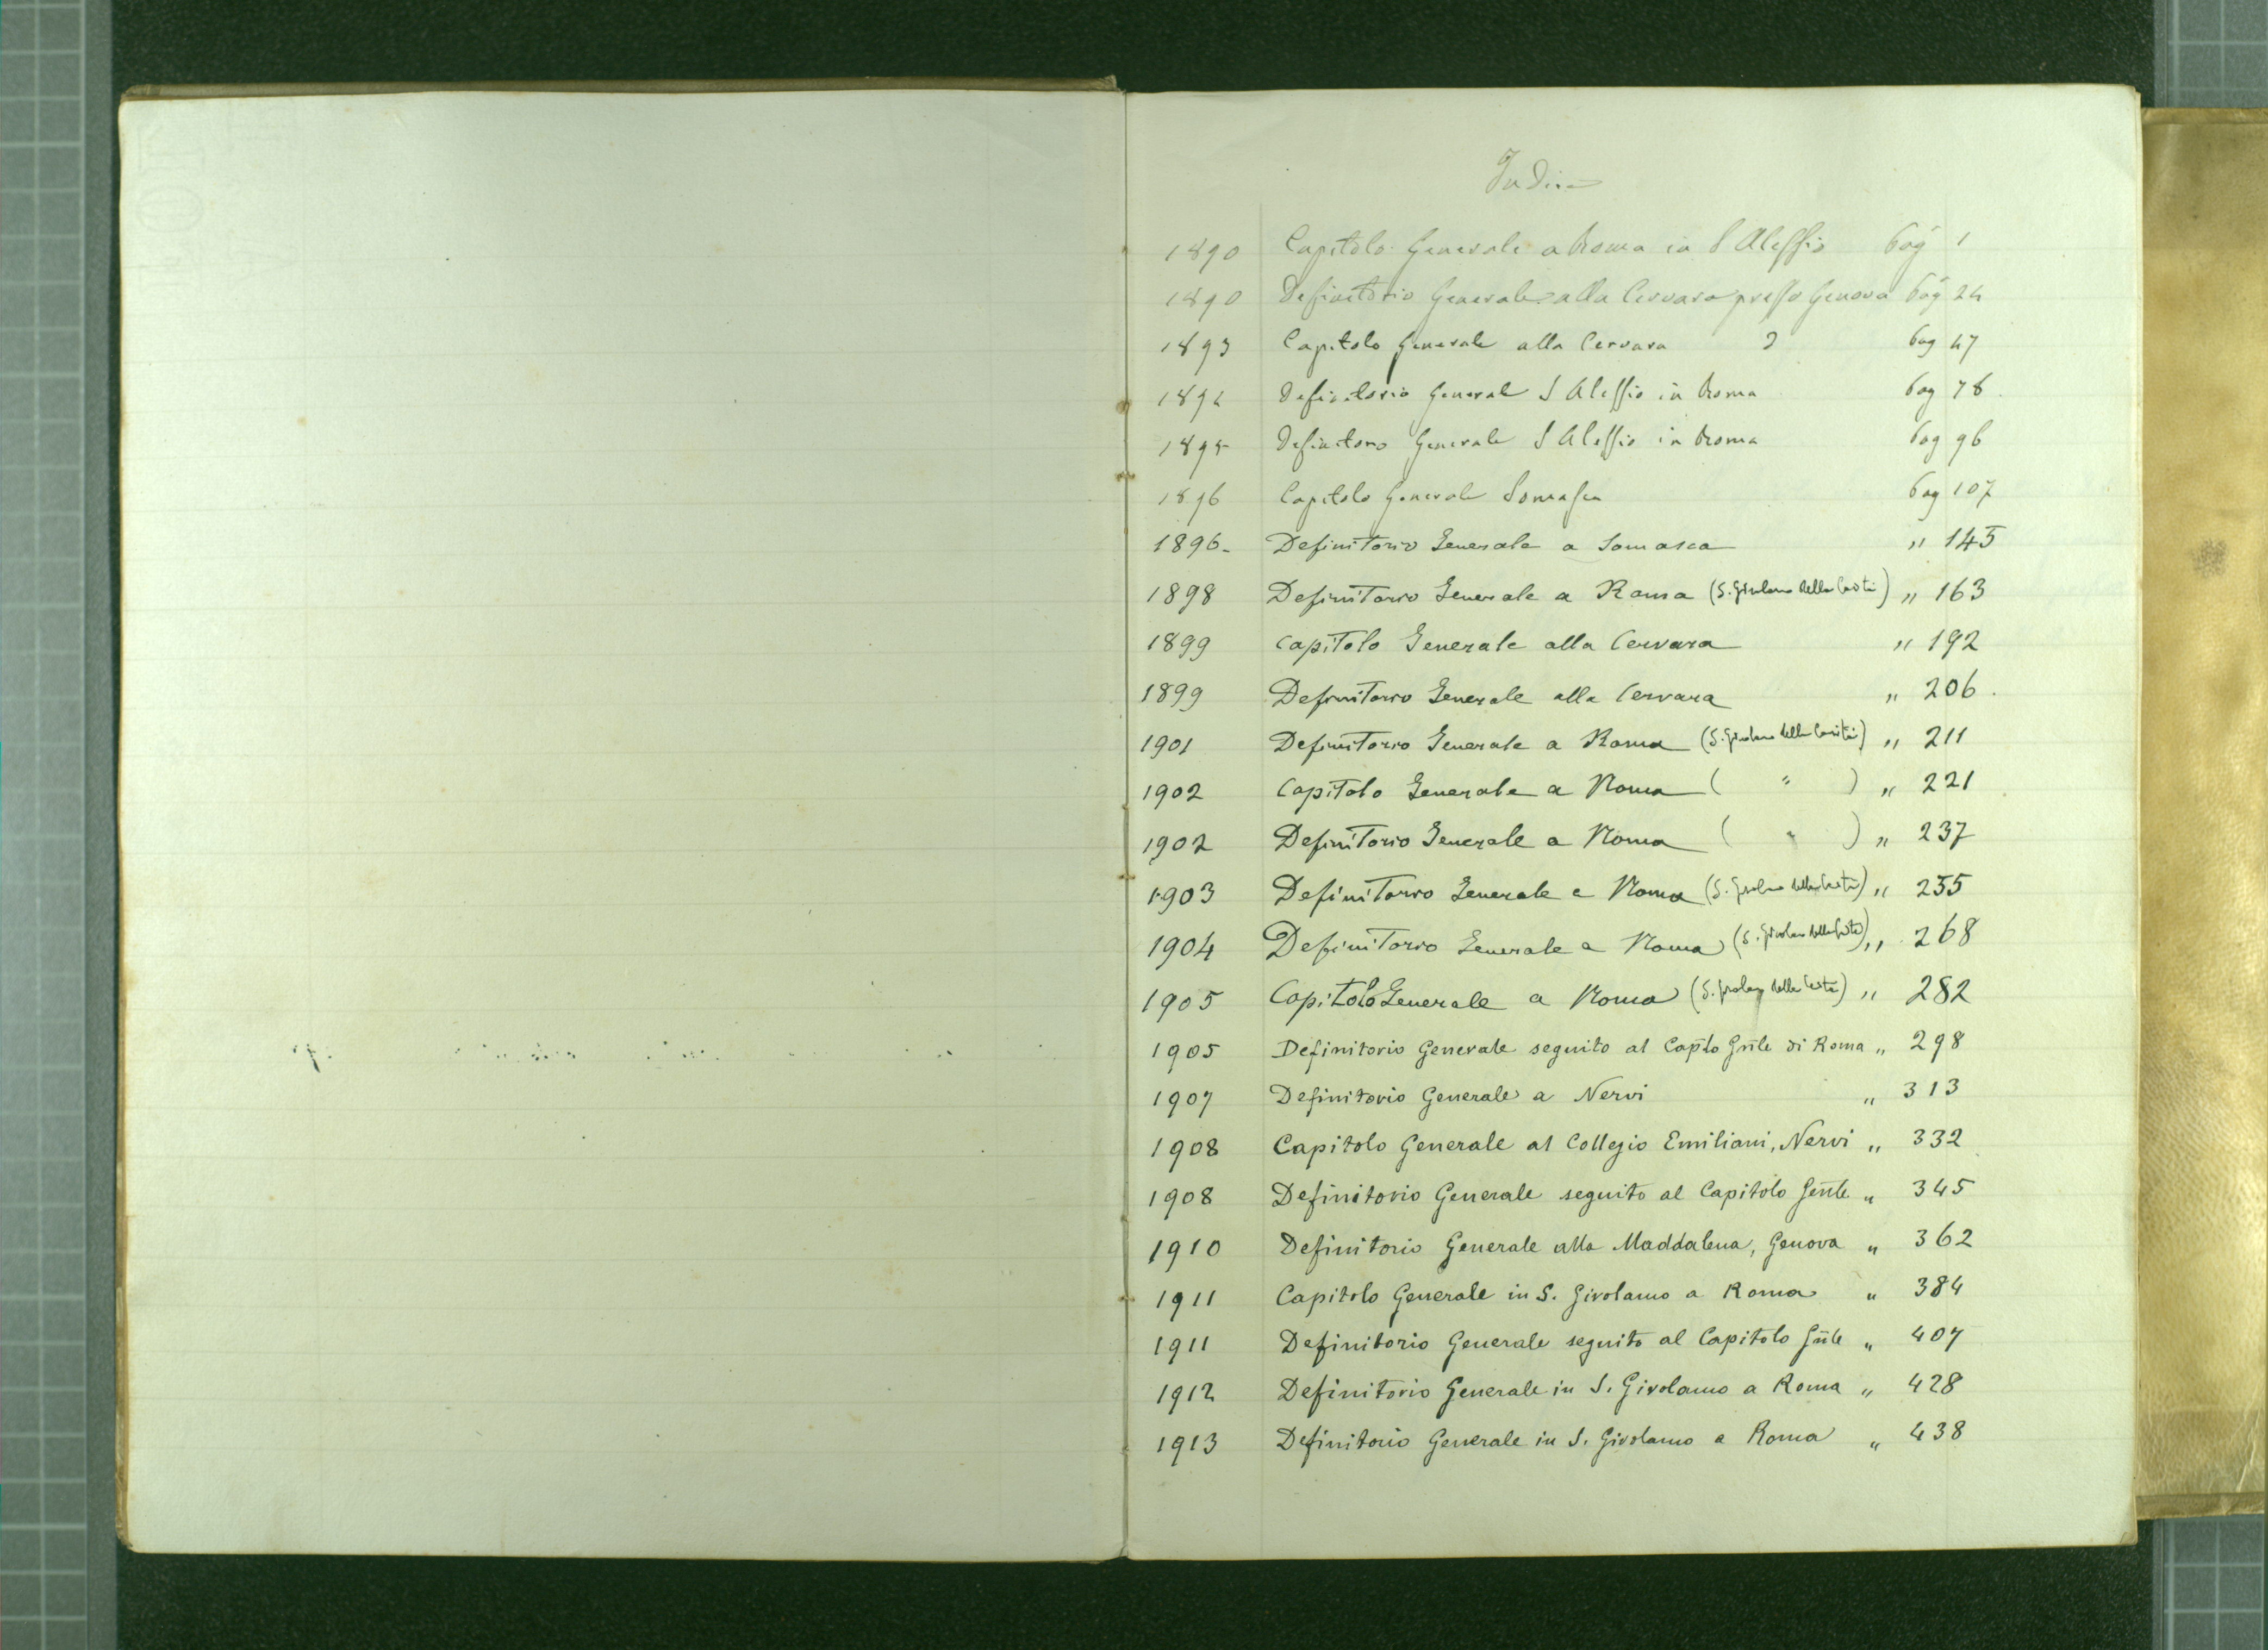 Indice
1890 Capitolo Generale a Roma in S Alessio pag 1
1890 Definitorio Generale alla Cervara presso Genova pag 24
1893 Capitolo Generale alla Cervara pag 47
1894 Definitorio General S Alessio in Roma pag 78
1895 Definitorio Generale S Alessio in Roma pag 96
1896 Capitolo Generale Somasca pag 107
1896- Definitorio Generale a Somasca " 145
1898 Definitorio Generale a Roma (S. Girolamo della Carità) " 163
1899 Capitolo Generale alla Cervara " 192
1899 Definitorio Generale alla Cervara " 206.
1901 Definitorio Generale a Roma (S. Girolamo della Carità) " 211
1902 Capitolo Generale a Roma ( " ) " 221
1902 Definitorio Generale a Roma ( " ) " 237
1903 Definitorio Generale a Roma (S. Girolamo della Carità) " 255
1904 Definitorio Generale a Roma (S. Girolamo della Carità) " 268
1905 Capitolo Generale a Roma (S. Girolamo della Carità) " 282
1905 Definitorio Generale seguito al Cap̄lo Gn̄le di Roma " 298
1907 Definitorio Generale a Nervi " 313
1908 Capitolo Generale al Collegio Emiliani, Nervi " 332
1908 Definitorio Generale seguito al Capitolo Gen̄le " 345
1910 Definitorio Generale alla Maddalena, Genova " 362
1911 Capitolo Generale in S. Girolamo a Roma " 384
1911 Definitorio Generale seguito al Capitolo Gn̄le " 407
1912 Definitorio Generale in S. Girolamo a Roma " 428
1913 Definitorio Generale in S. Girolamo a Roma " 438